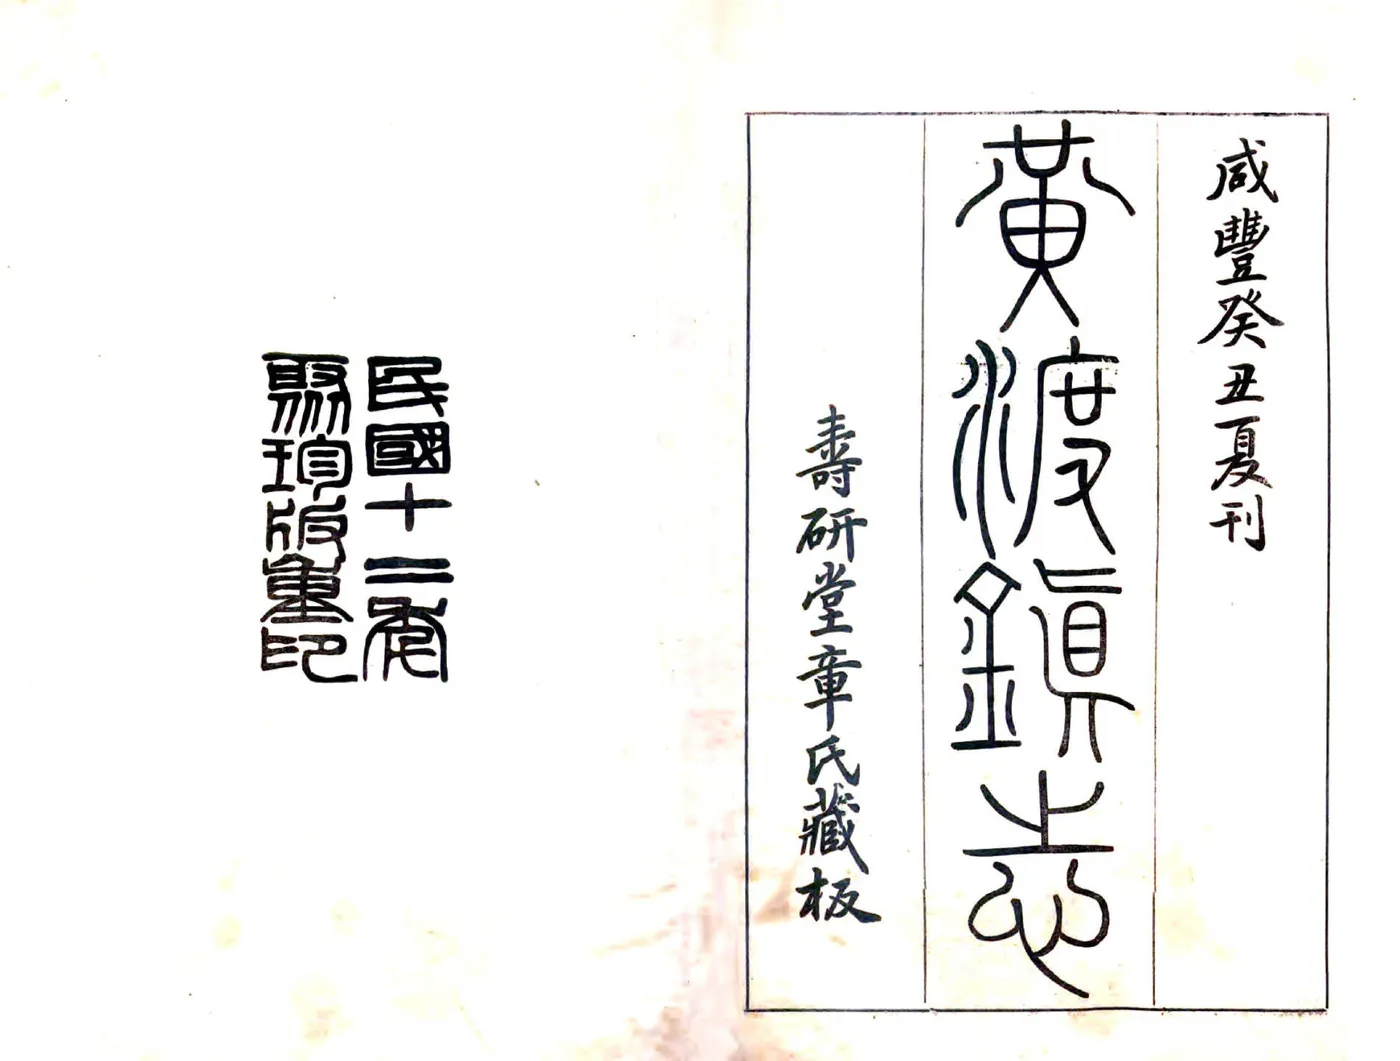 咸豐癸丑夏刊
黃渡鎮志
壽研堂章氏藏板
民國十二年
聚珍版重印